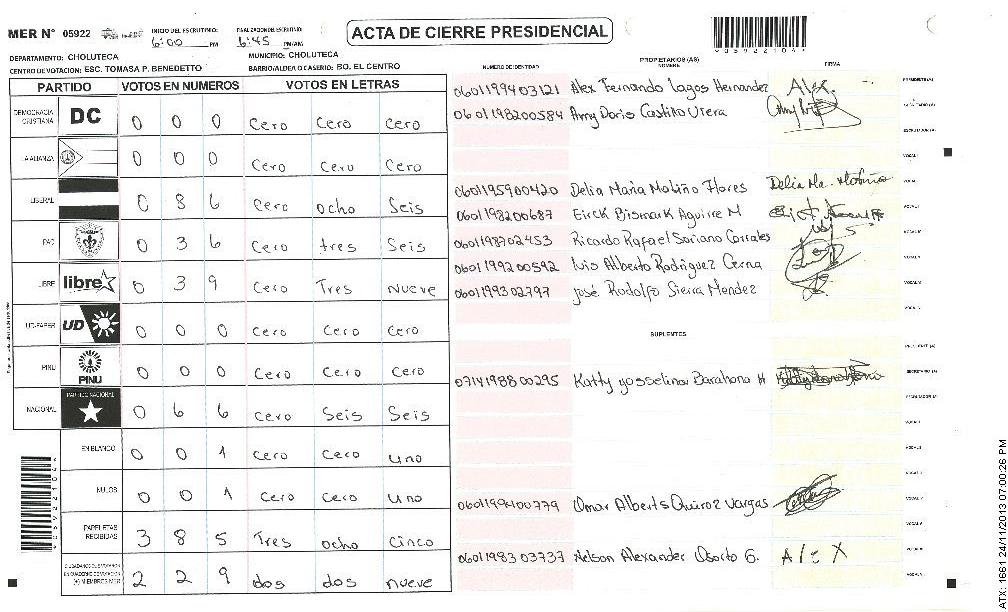 MER N° 05922 INICIO DEL ESCRUTINIO: 6:00 PM FINALIZACION ESCRUTINIO: 6:45 PM/AM ACTA DE CIERRE PRESIDENCIAL
DEPARTAMENTO: CHOLUTECA MUNICIPIO: CHOLUTECA
CENTRO DE VOTACION: ESC. TOMASA P. BENEDETTO BARRIO/ALDEA O CASERIO: BO. EL CENTRO
PARTIDO VOTOS EN NUMEROS VOTOS EN LETRAS
DEMOCRACIA CRISTIANA DC 0 0 0 Cero Cero Cero
LA ALIANZA 0 0 0 Cero Cero Cero
LIBERAL 0 8 6 Cero ocho Seis
PAC 0 3 6 Cero tres Seis
LIBRE libre 0 3 9 Cero Tres Nueve
UD-FAPER UD 0 0 0 Cero Cero Cero
PINU PINU 0 0 0 Cero Cero Cero
NACIONAL PARTIDO NACIONAL 0 6 6 Cero Seis Seis
EN BLANCO 0 0 1 Cero Cero uno
NULOS 0 0 1 Cero Cero uno
PAPELETAS RECIBIDAS 3 8 5 Tres ocho Cinco
2 2 9 dos dos nueve
NUMERO DE IDENTIDAD PROPIETARIOS (AS) NOMBRE FIRMA
0601199403121 Alex Fernando Lagos Hernandez Alex. PRESIDENTE(A)
0601198200584 Amy Doris Castillo Utera SECRETARIO (A)
ESCRUTADOR (A)
VOCAL I
0601195900420 Delia Maria Moliño Flores Delia Ma. Moliño
0601198200687 Eirck Bismark Aguirre M
0601198702453 Ricardo Rafael Soriano Corrales
0601199200592 luis Alberto Rodriguez Cerna
0601199302797 José Rodolfo Sierra Mendez
SUPLENTES
PRESIDENTE (A)
0714198800295 Katty yosselina Barahona H SECRETARIO (A)
ESCRUTADOR (A)
0601199100779 Omar Alberts Quiroz Vargas
0601198303737 Nelson Alexander Osorto G. Alex
0592210 4
ATX: 1661 24/11/2013 07:00:26 PM